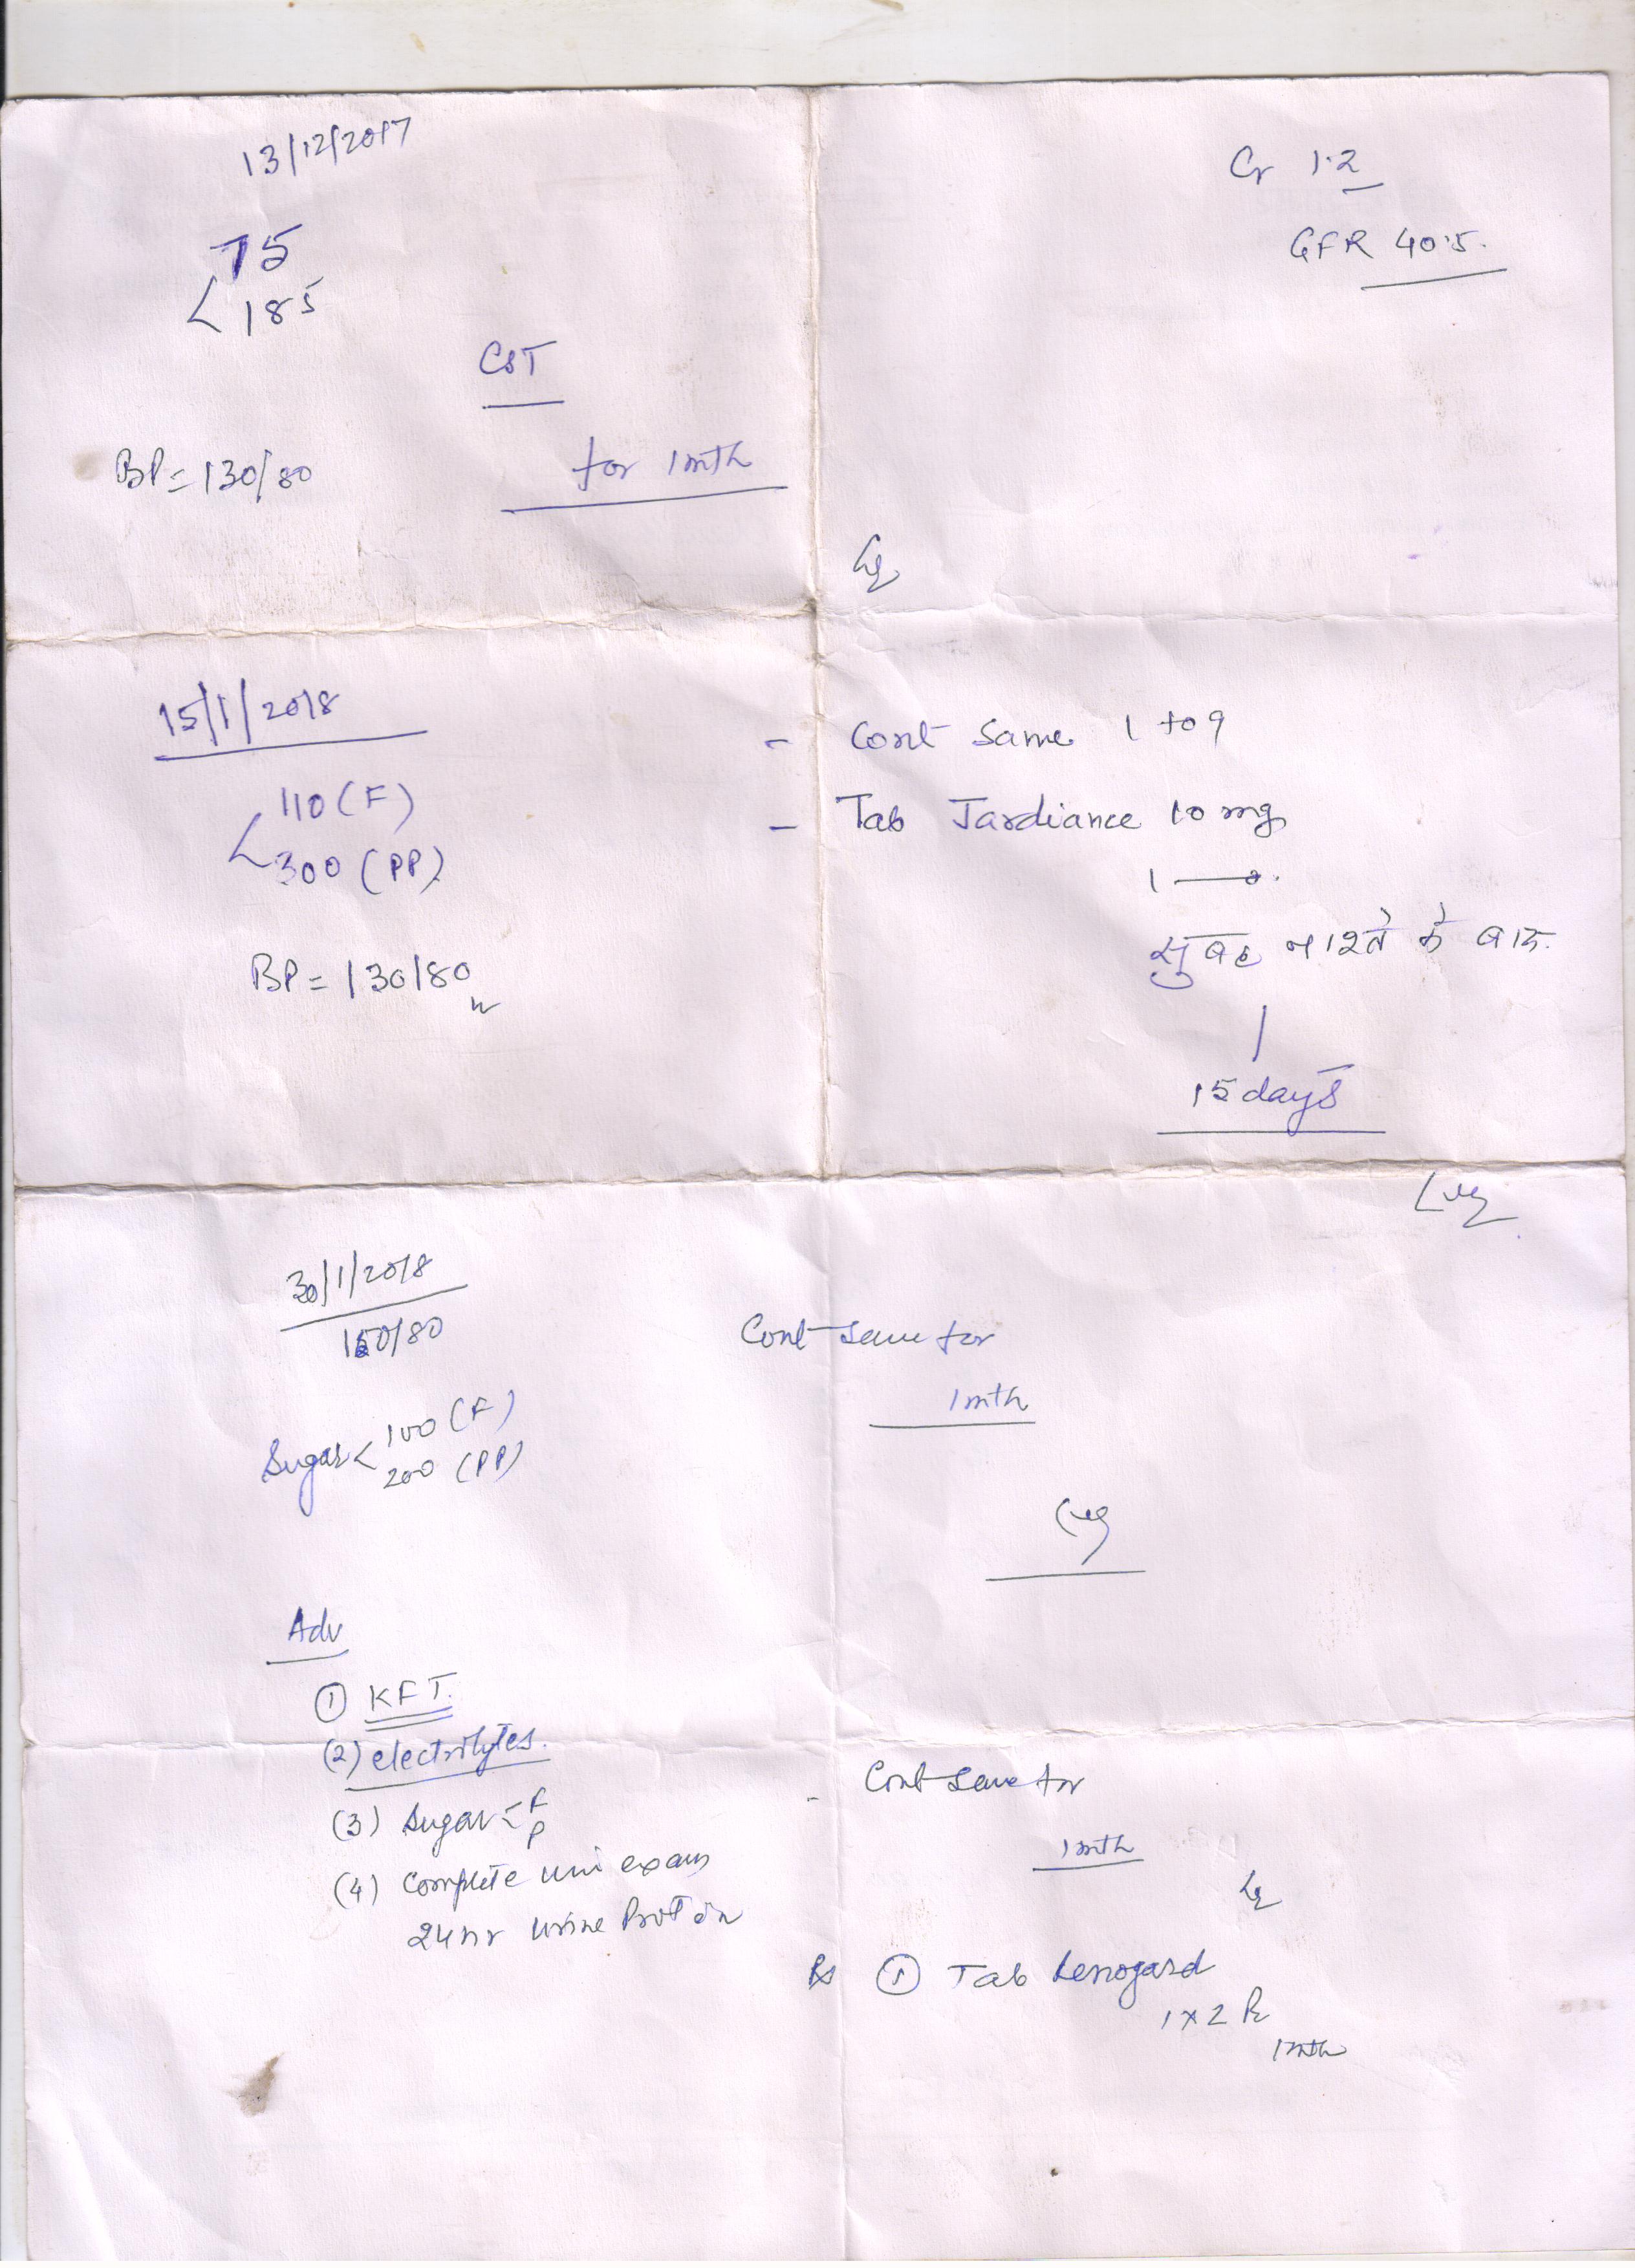 13/12/2017
75
185
CST
for 1mth
BP = 130/80
Cr 1.2
GFR 40.5.
15/1/2018
110 (F)
300 (PP)
BP = 130/80
- Cont same 1 to 9
- Tab Jardiance 10 mg
1
सुबह नाश्ते के बाद.
15 days
30/1/2018
/80
Sugar < 100 (F)
200 (PP)
Cont same for
1mth
Adv
① KFT.
(2) electrolytes.
(3) Sugar < F
P
(4) Complete exam
24 hr urine Protein
- Cont same for
1mth
① Tab
1 x 2
1mth